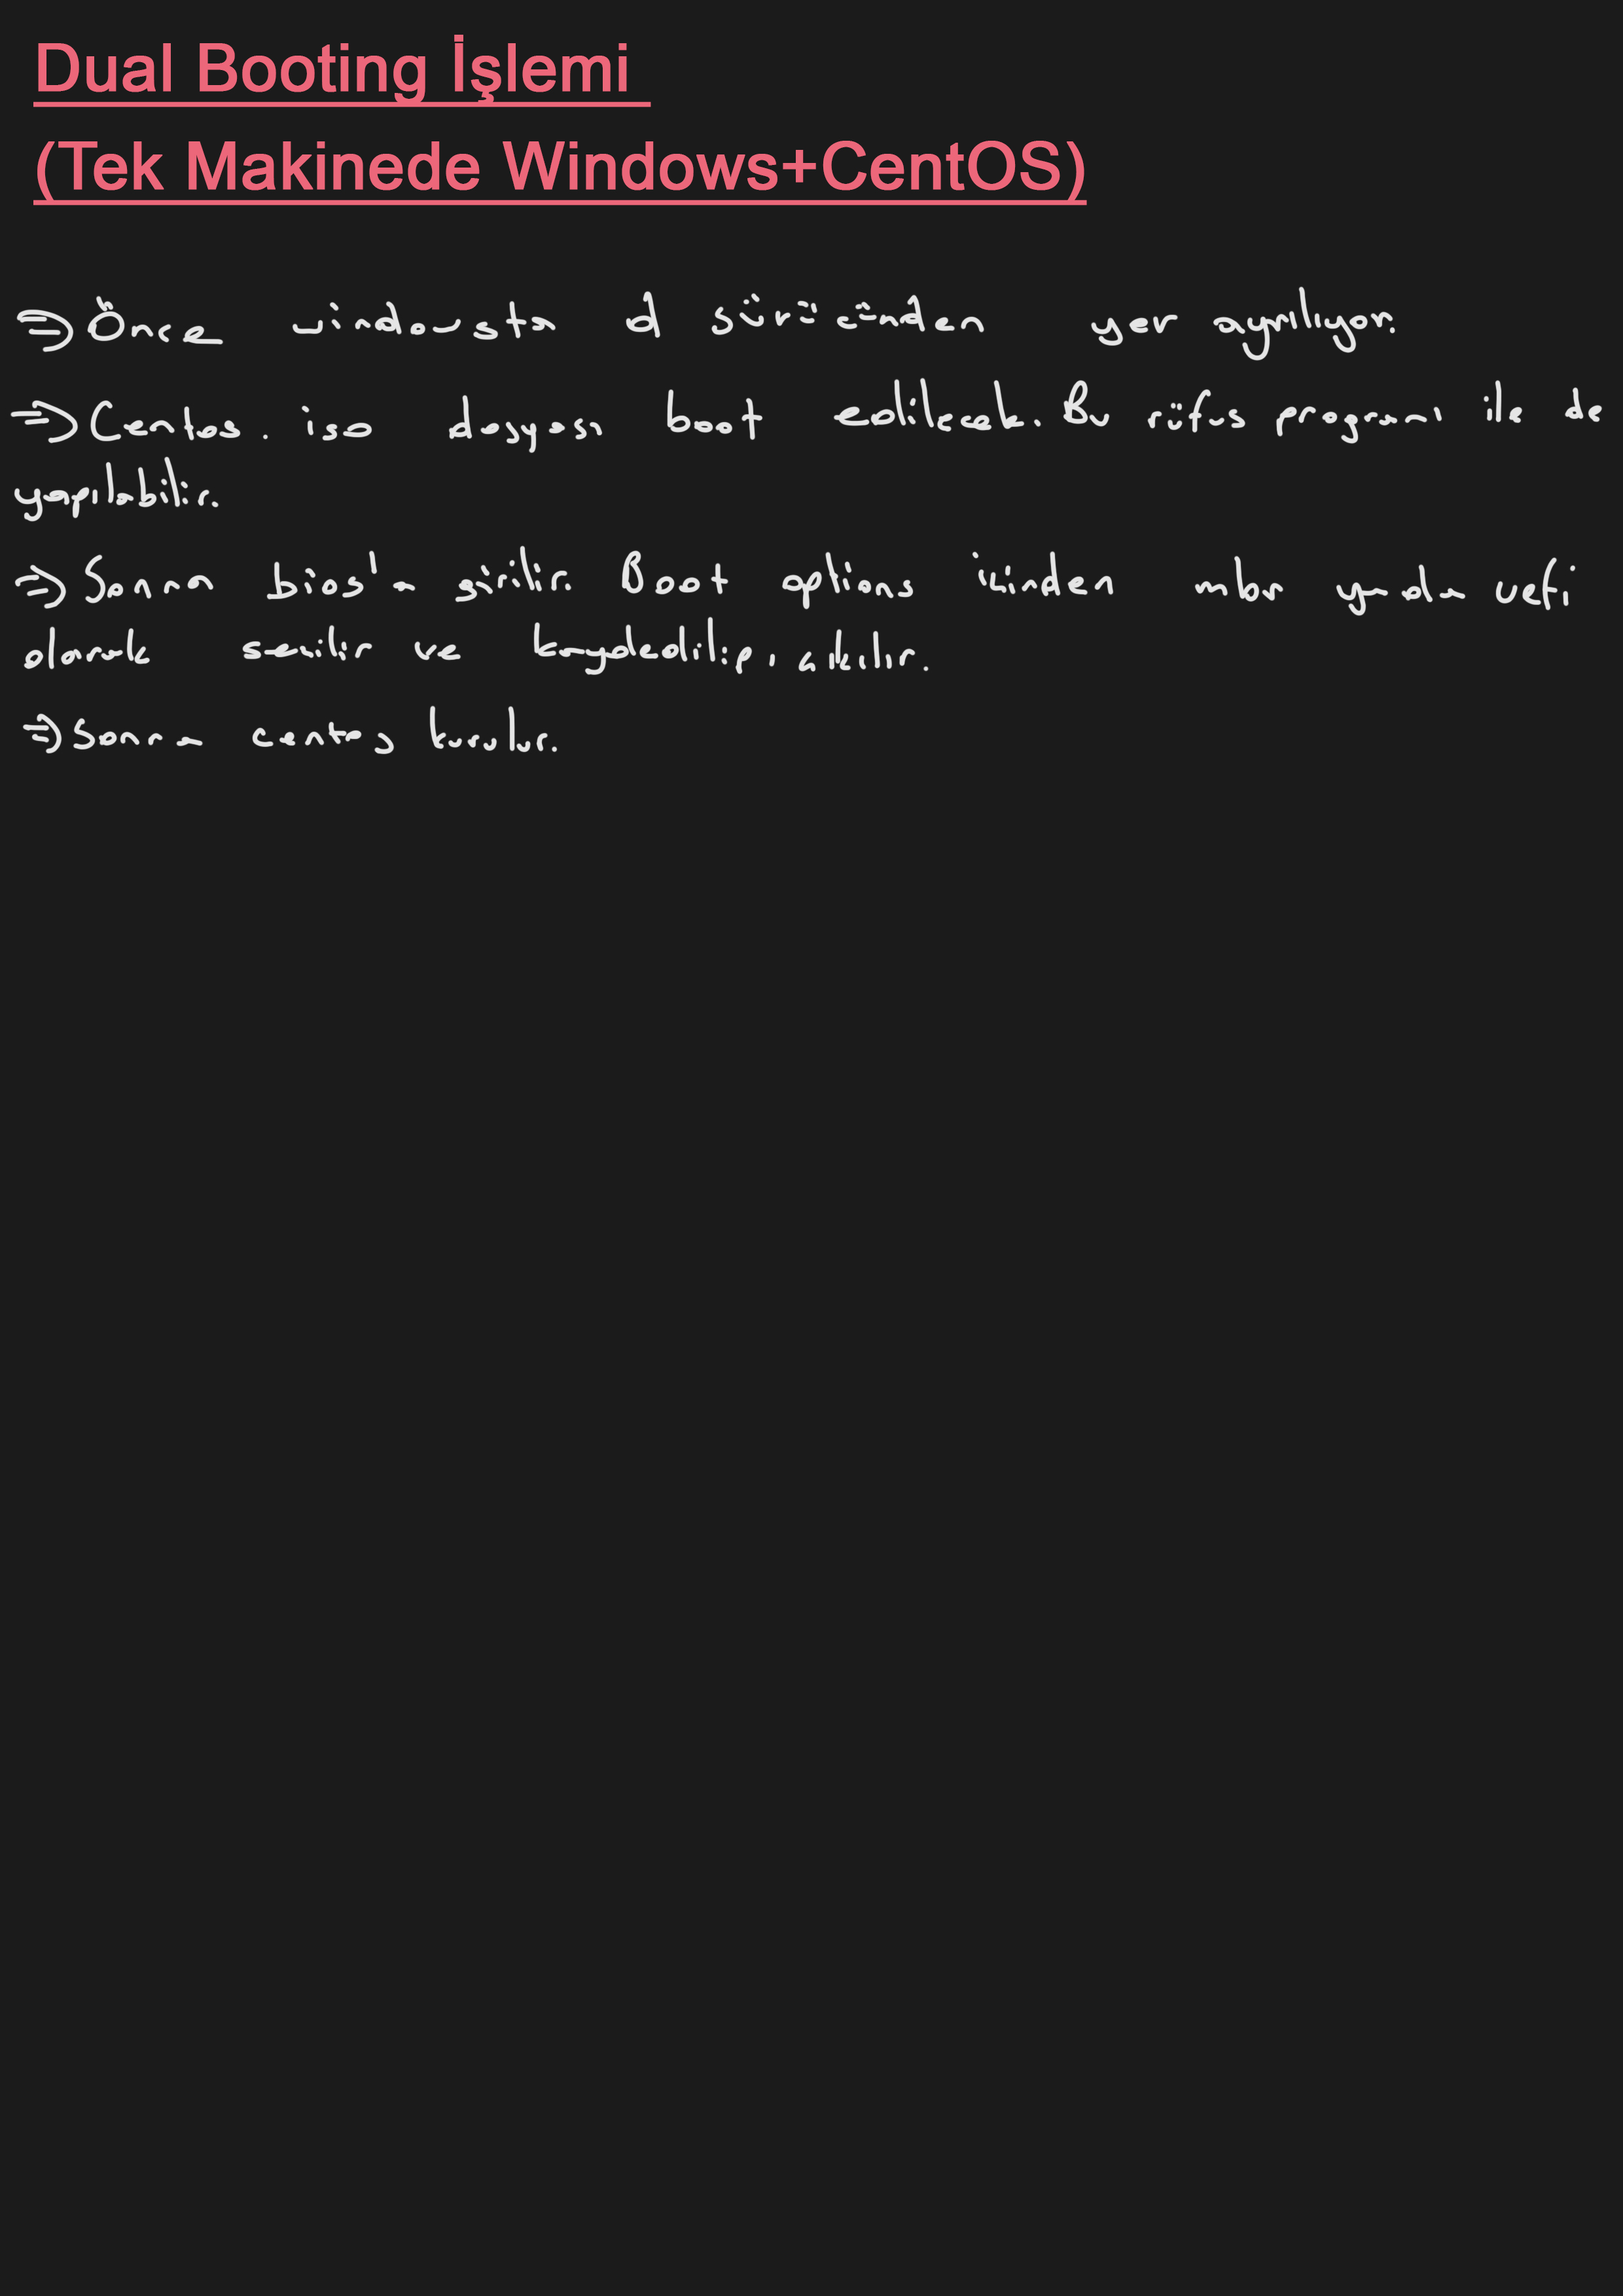 Dual Booting İşlemi
(Tek Makinede Windows+CentOS)
⇒ Önce windowsta d sürücünden yer ayrılıyor.
⇒ Centos.iso dosyası boot edilecek. Bu rufus programı ile de
yapılabilir.
⇒ Sonra bios'a girilir. Boot options içinden usb uefi
olarak seçilir ve kaydedilip çıkılır.
⇒ Sonra centos kurulur.